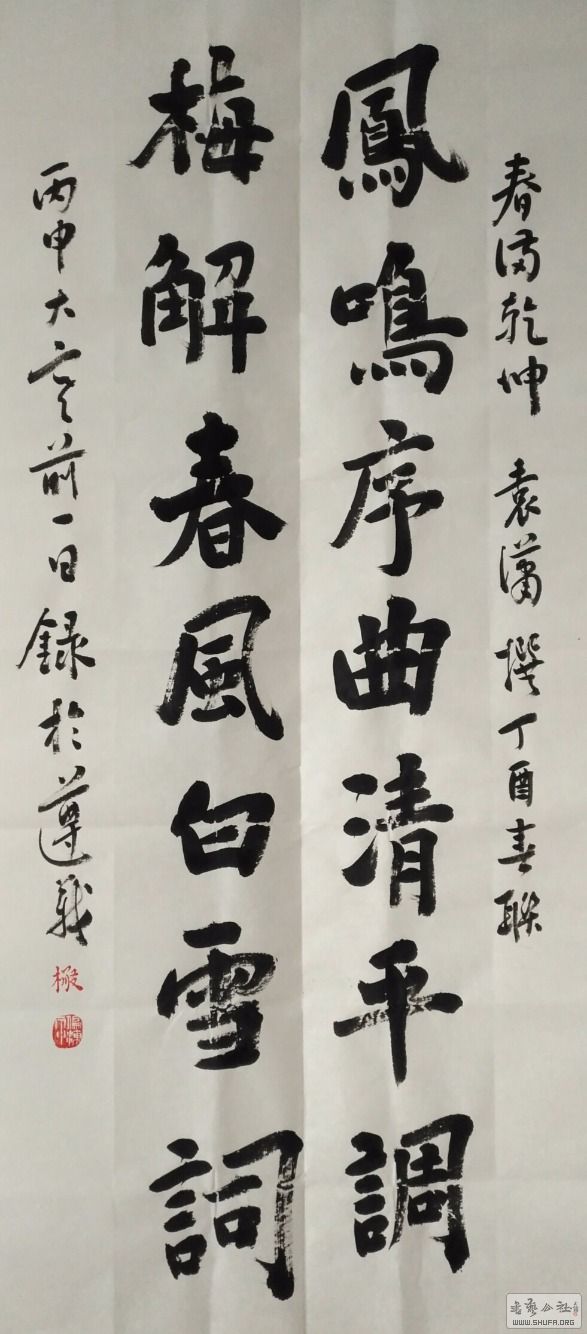 春滿乾坤 袁滿撰丁酉春聯
鳳鳴序曲清平調
梅解春風白雪詞
丙申大寒前一日錄於遵義
書藝公社
WWW.SHUFA.ORG